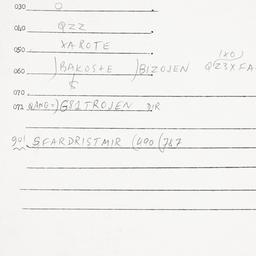 030 Q
040 QZZ
050 XAROTE
(XO)
060 )BAKOSTE )BIZOJEN Q(23XFA
070
071 QANG=)G81TROJEN DIR
90! SFARDRISTMIR (490(767